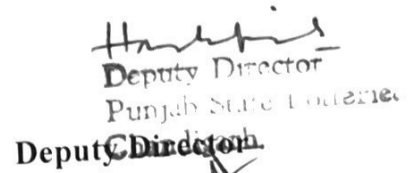 Deputy Director
Punjab State Lotteries
Chandigarh
Deputy Director